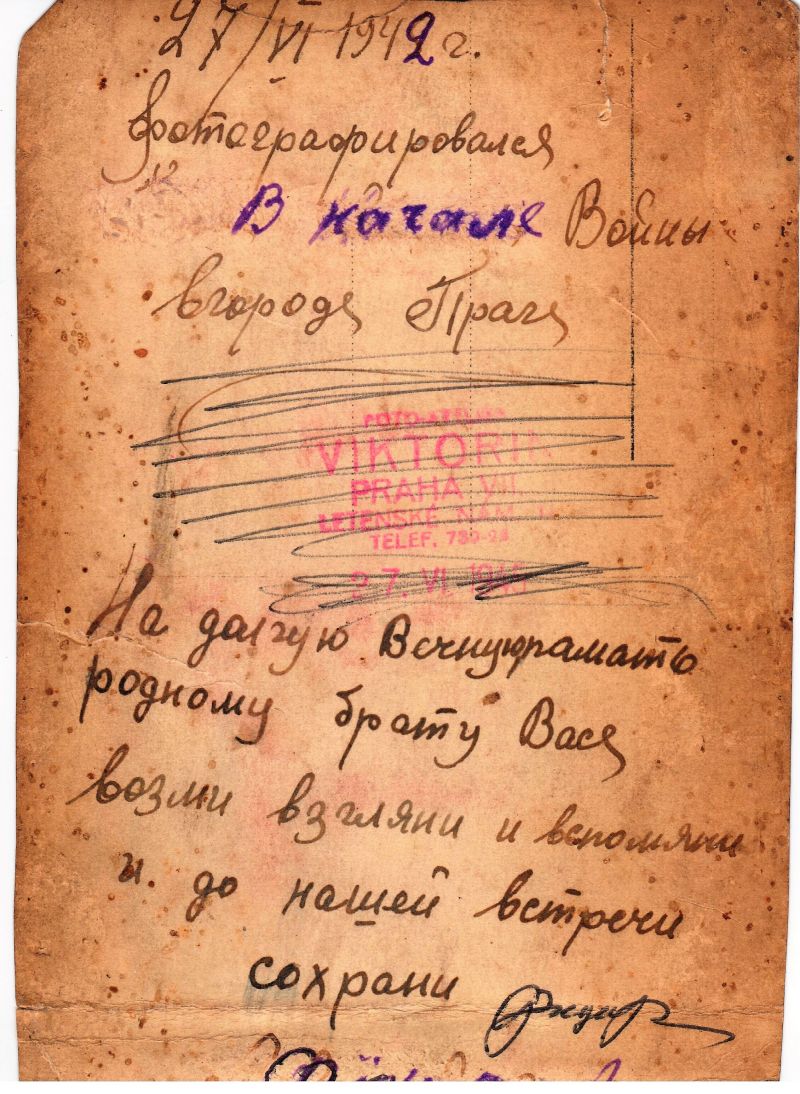 27/VI 1942 г.
Фотографировался
В начале Войны
вгороде Праге
FOTO-ATELIER
VIKTORIN
PRAHA VII.
LETENSKÉ NÁM.
TELEF.
27. VI. 1945
На долгую Вечнуюрамать
родному брату Васе
возми взгляни и вспомяни
и. до нашей встречи
сохрани